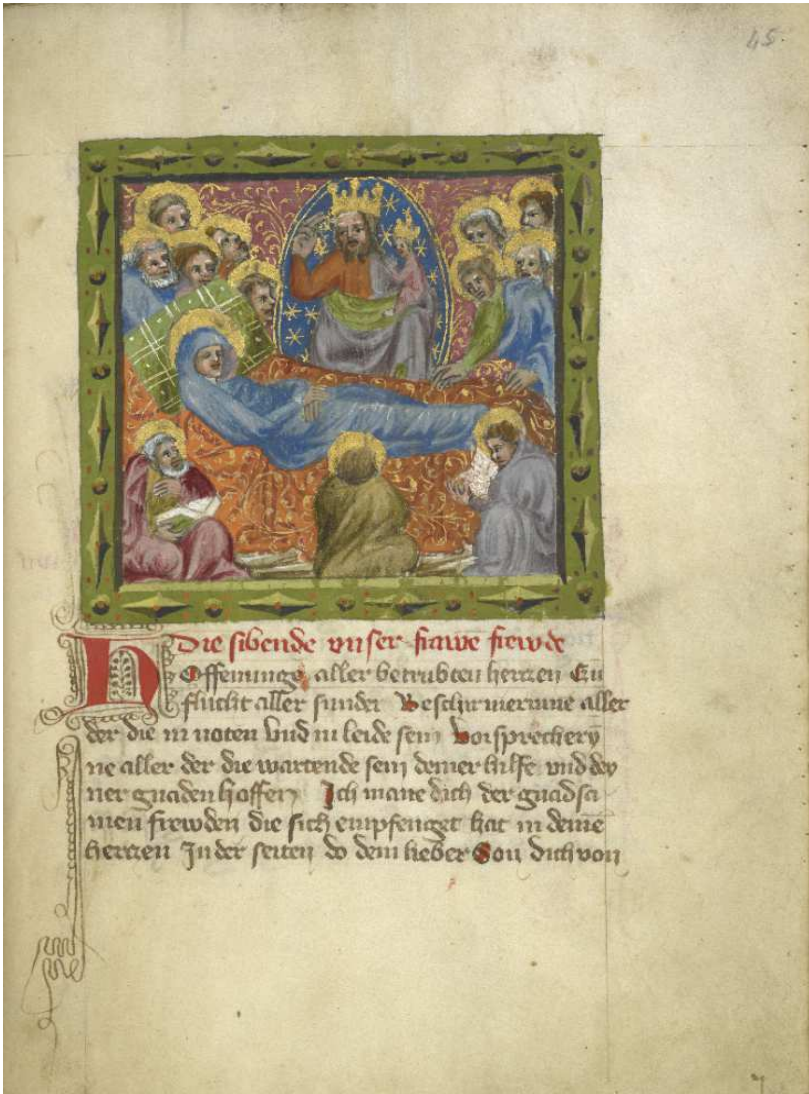 45.
Die sibende vnser frawe frewde
Offenunge aller betrubten herrzen Zu
flucht aller sunder Beschirmerinne aller
der die in noten vnd in leide sein Vorsprechery
ne aller der die wartende sein deiner hilfe vnd dey
ner gnaden hoffen Ich mane dich der gnadsa
men frewden die sich empfenget hat in deine
herrzen In der seiten do dein lieber Son dich von